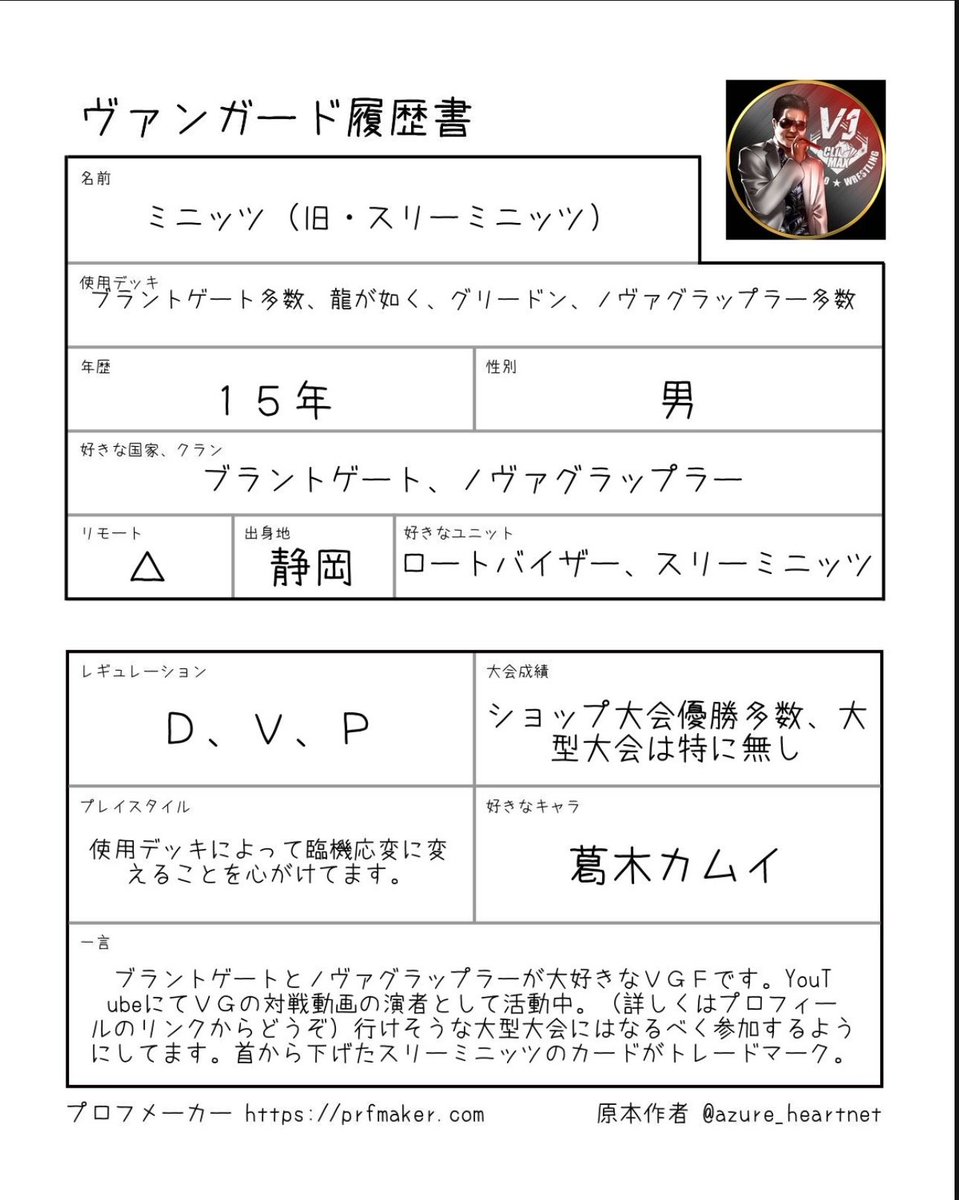 ヴァンガード履歴書
V1
CLI
MAX
WRESTLING
名前
ミニッツ（旧・スリーミニッツ）
使用デッキ
ブラントゲート多数、龍が如く、グリードン、ノヴァグラップラー多数
年歴
１５年
性別
男
好きな国家、クラン
ブラントゲート、ノヴァグラップラー
リモート
△
出身地
静岡
好きなユニット
ロートバイザー、スリーミニッツ
レギュレーション
Ｄ、Ｖ、Ｐ
大会成績
ショップ大会優勝多数、大
型大会は特に無し
プレイスタイル
使用デッキによって臨機応変に変
えることを心がけてます。
好きなキャラ
葛木カムイ
一言
ブラントゲートとノヴァグラップラーが大好きなＶＧＦです。YouT
ubeにてＶＧの対戦動画の演者として活動中。（詳しくはプロフィー
ルのリンクからどうぞ）行けそうな大型大会にはなるべく参加するよう
にしてます。首から下げたスリーミニッツのカードがトレードマーク。
プロフメーカー https://prfmaker.com
原本作者 @azure_heartnet